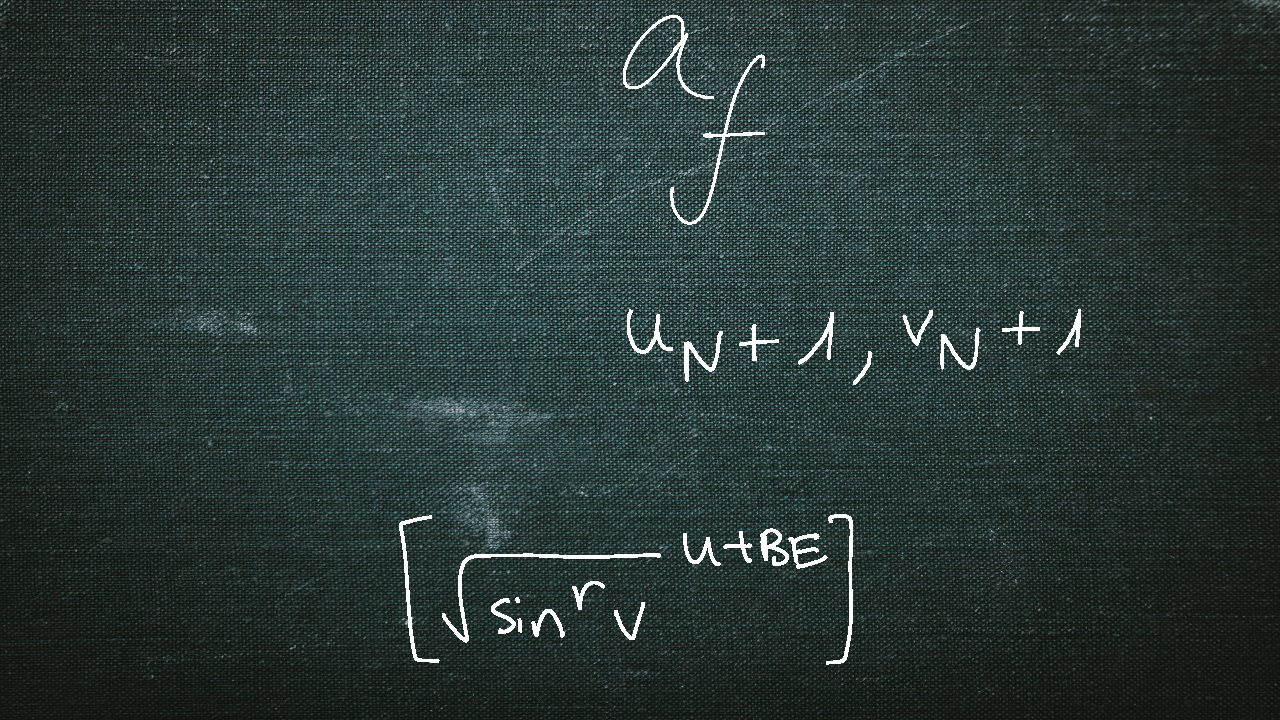 a_f
u_N + 1, v_N + 1
[√(sin^r v)^{u+BE}]